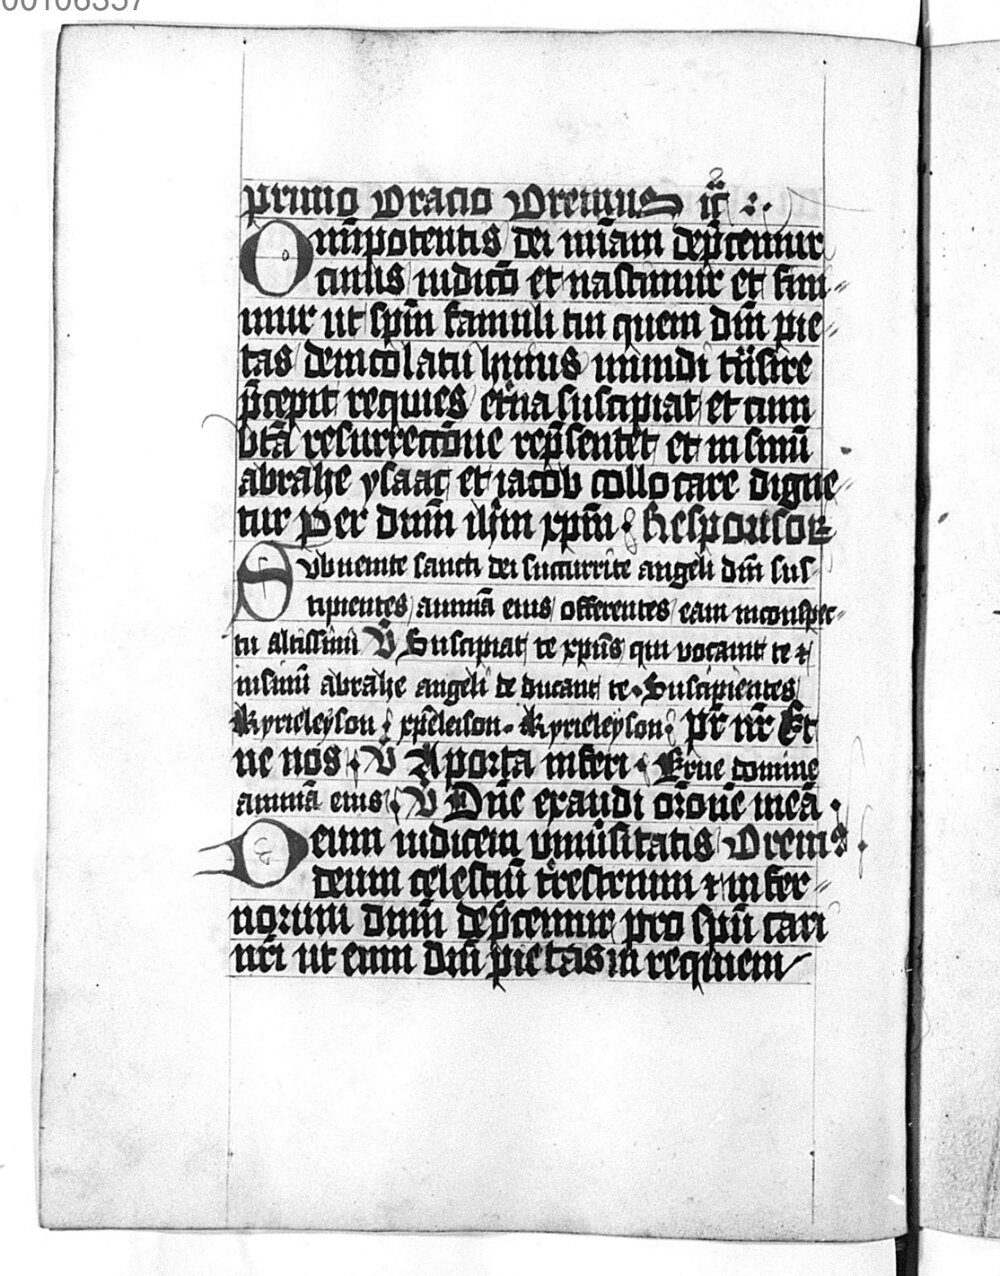 00106357
primo Oracio Oremus
Omnipotentis dei miam dep̄cemur
cuius iudicō et nascimur et fini
mur ut spm̄ famuli tui quem dm̄ pie
tas de incolatu huius mundi tͥsire
p̄cepit requies et̄na suscipiat et cum
bt̄a resurrectōne rep̄sentet et in sinū
abrahe ysaac et iacob collocare digne
tur Per dnm̄ ihm̄ xpm̄ Responsor
Subuenite sancti dei succurrite angeli dm̄ sus
cipientes animā eius offerentes eam in conspec
tu altissimi V̄ Suscipiat te xpūs qui vocauit te ⁊
in sinū abrahe angeli de ducant te Suscipientes
Kyrieleyson xp̄eleison Kyrieleyson Pr̄ nr̄ Et
ne nos V̄ A porta inferi Erue domine
animā eius V̄ Dn̄e exaudi orōnē meā
Deum iudicem vniūsitatis Oremꝰ
deum celestiū tͤrestrium ⁊ in fer
norum dnm̄ dep̄cemur pro spū cari
nr̄i ut eum dm̄ pietas in requiem